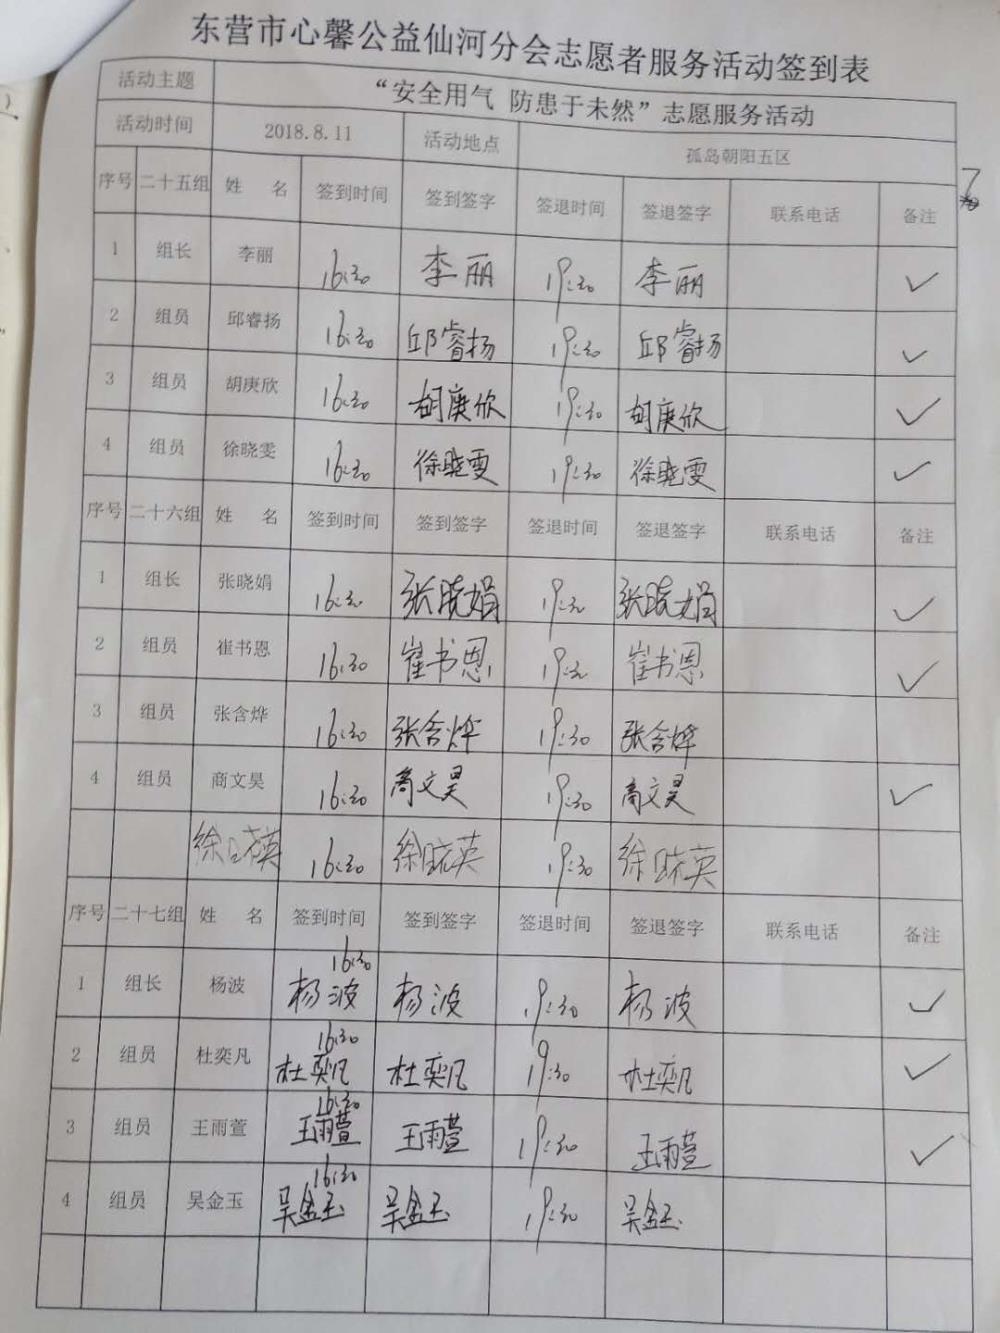 东营市心馨公益仙河分会志愿者服务活动签到表
活动主题 “安全用气 防患于未然”志愿服务活动
活动时间 2018.8.11 活动地点 孤岛朝阳五区
序号 二十五组 姓 名 签到时间 签到签字 签退时间 签退签字 联系电话 备注
1 组长 李丽 16:30 李丽 19:30 李丽 ✓
2 组员 邱睿扬 16:30 邱睿扬 19:30 邱睿扬 ✓
3 组员 胡庚欣 16:30 胡庚欣 19:30 胡庚欣 ✓
4 组员 徐晓雯 16:30 徐晓雯 19:30 徐晓雯 ✓
序号 二十六组 姓 名 签到时间 签到签字 签退时间 签退签字 联系电话 备注
1 组长 张晓娟 16:30 张晓娟 19:30 张晓娟 ✓
2 组员 崔书恩 16:30 崔书恩 19:30 崔书恩 ✓
3 组员 张含烨 16:30 张含烨 19:30 张含烨
4 组员 商文昊 16:30 商文昊 19:30 商文昊 ✓
徐晓英 16:30 徐晓英 19:30 徐晓英
序号 二十七组 姓 名 签到时间 签到签字 签退时间 签退签字 联系电话 备注
1 组长 杨波 16:30 杨波 杨波 19:30 杨波 ✓
2 组员 杜奕凡 16:30 杜奕凡 杜奕凡 19:30 杜奕凡 ✓
3 组员 王雨萱 16:30 王雨萱 王雨萱 19:30 王雨萱 ✓
4 组员 吴金玉 16:30 吴金玉 吴金玉 19:30 吴金玉